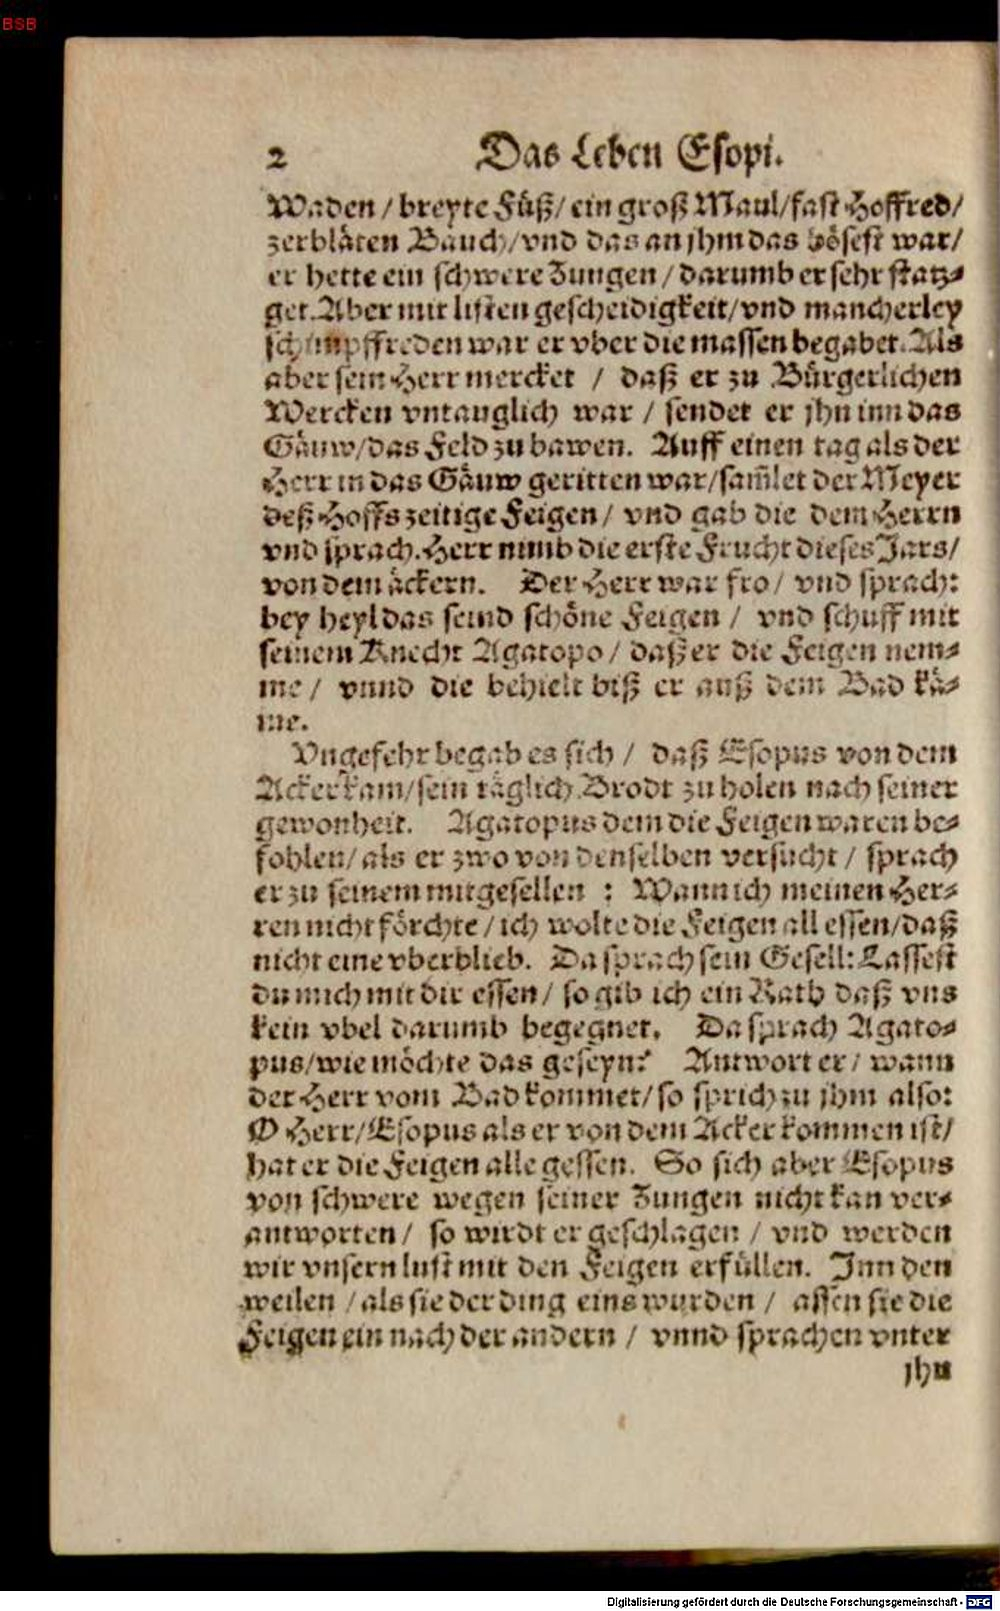 BSB
2 Das Leben Esopi.
Waden / breyte Füß / ein groß Maul / fast Hoffred /
zerbläten Bauch / vnd das an jhm das bösest war /
er hette ein schwere Zungen / darumb er sehr statz-
get. Aber mit listen gescheidigkeit / vnd mancherley
schimpffreden war er vber die massen begabet. Als
aber sein Herr mercket / daß er zu Bürgerlichen
Wercken vntauglich war / sendet er jhn inn das
Gäuw / das Feld zu bawen. Auff einen tag als der
Herr in das Gäuw geritten war / sam̃let der Meyer
deß Hoffs zeitige Feigen / vnd gab die dem Herrn
vnd sprach. Herr nimb die erste Frucht dieses Jars /
von dem äckern. Der Herr war fro / vnd sprach:
bey heyl das seind schöne Feigen / vnd schuff mit
seinem Knecht Agatopo / daß er die Feigen nem-
me / vnnd die behielt biß er auß dem Bad kä-
me.
Vngefehr begab es sich / daß Esopus von dem
Acker kam / sein täglich Brodt zu holen nach seiner
gewonheit. Agatopus dem die Feigen waren be-
fohlen / als er zwo von denselben versucht / sprach
er zu seinem mitgesellen : Wann ich meinen Her-
ren nicht förchte / ich wolte die Feigen all essen / daß
nicht eine vberblieb. Da sprach sein Gesell: Lassest
du mich mit dir essen / so gib ich ein Rath daß vns
kein vbel darumb begegnet. Da sprach Agato-
pus / wie möchte das geseyn? Antwort er / wann
der Herr vom Bad kommet / so sprich zu jhm also:
O Herr / Esopus als er von dem Acker kommen ist /
hat er die Feigen alle gessen. So sich aber Esopus
von schwere wegen seiner Zungen nicht kan ver-
antworten / so wirdt er geschlagen / vnd werden
wir vnsern lust mit den Feigen erfüllen. Inn den
weilen / als sie der ding eins wurden / assen sie die
Feigen ein nach der andern / vnnd sprachen vnter
jhn
Digitalisierung gefördert durch die Deutsche Forschungsgemeinschaft - DFG